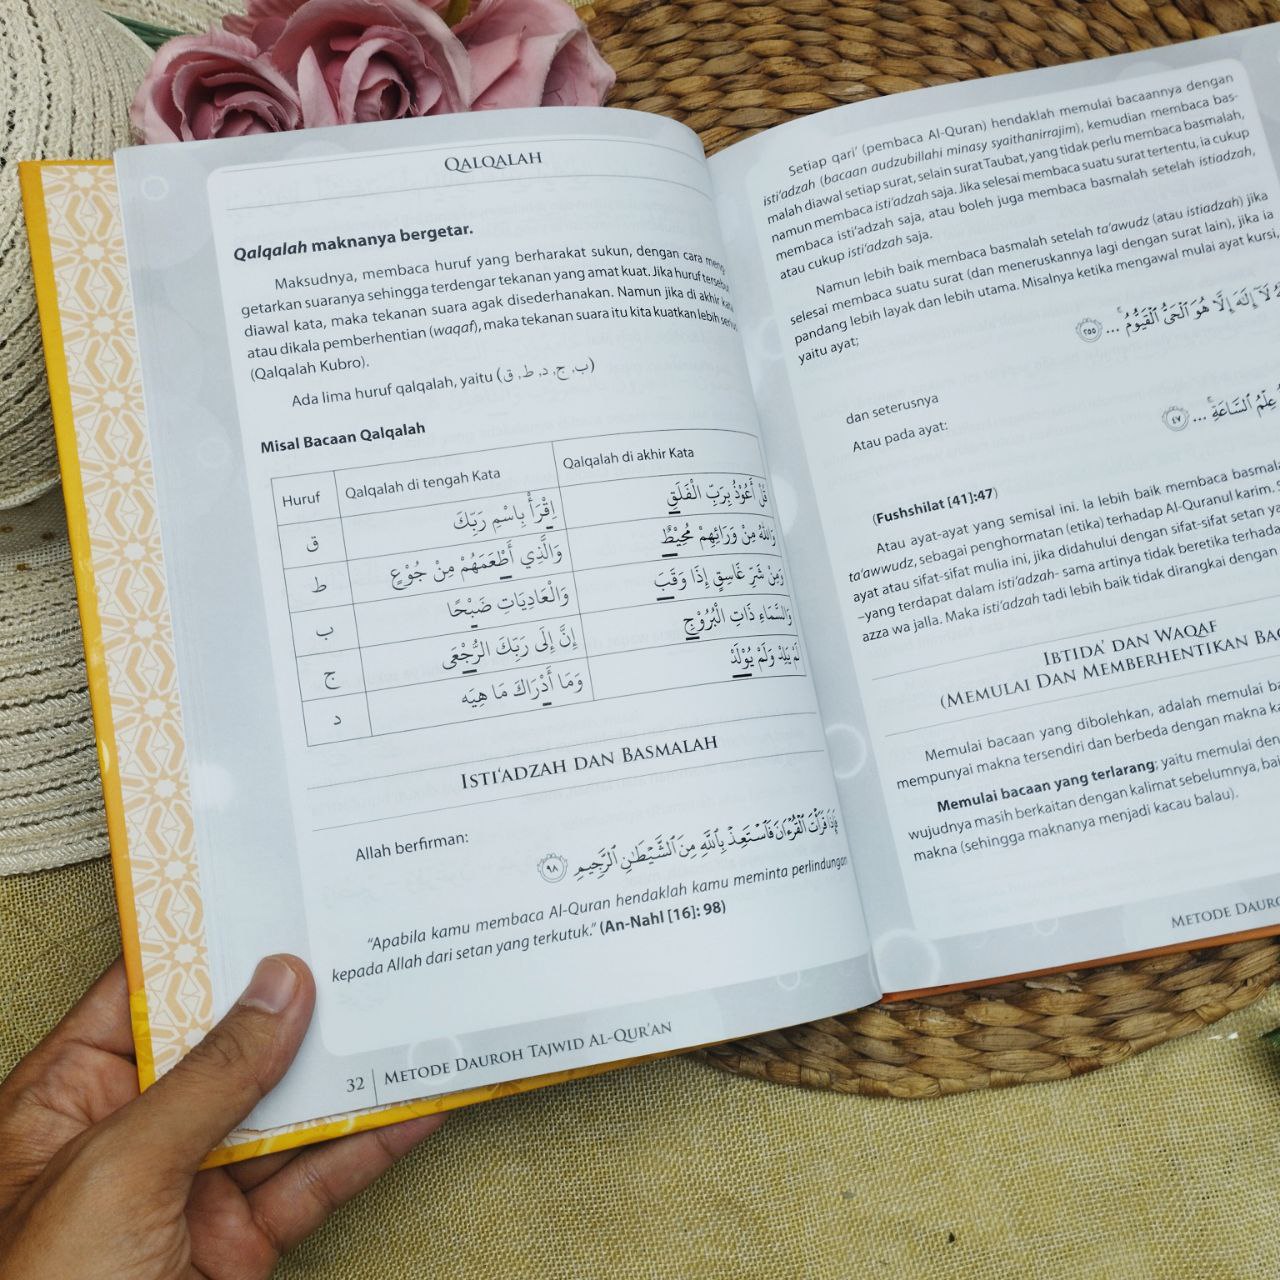 QALQALAH
Qalqalah maknanya bergetar.
Maksudnya, membaca huruf yang berharakat sukun, dengan cara meng
getarkan suaranya sehingga terdengar tekanan yang amat kuat. Jika huruf tersebut
diawal kata, maka tekanan suara agak disederhanakan. Namun jika di akhir kata
atau dikala pemberhentian (waqaf), maka tekanan suara itu kita kuatkan lebih
(Qalqalah Kubro).
Ada lima huruf qalqalah, yaitu (ب, ج, د, ط, ق)
Misal Bacaan Qalqalah
Huruf Qalqalah di tengah Kata Qalqalah di akhir Kata
ق اِقْرَأْ بِاسْمِ رَبِّكَ قُلْ أَعُوْذُ بِرَبِّ الْفَلَقِ
ط وَالَّذِي أَطْعَمَهُمْ مِنْ جُوْعٍ وَاللهُ مِنْ وَرَائِهِمْ مُحِيْطٌ
ب وَالْعَادِيَاتِ ضَبْحًا وَمِنْ شَرِّ غَاسِقٍ إِذَا وَقَبَ
ج إِنَّ إِلَى رَبِّكَ الرُّجْعَى وَالسَّمَاءِ ذَاتِ الْبُرُوْجِ
د وَمَا أَدْرَاكَ مَا هِيَه لَمْ يَلِدْ وَلَمْ يُوْلَدْ
ISTI'ADZAH DAN BASMALAH
Allah berfirman:
فَإِذَا قَرَأْتَ ٱلْقُرْءَانَ فَٱسْتَعِذْ بِٱللَّهِ مِنَ ٱلشَّيْطَٰنِ ٱلرَّجِيمِ ٩٨
"Apabila kamu membaca Al-Quran hendaklah kamu meminta perlindungan
kepada Allah dari setan yang terkutuk." (An-Nahl [16]: 98)
32 METODE DAUROH TAJWID AL-QUR'AN
Setiap qari' (pembaca Al-Quran) hendaklah memulai bacaannya dengan
isti'adzah (bacaan audzubillahi minasy syaithanirrajim), kemudian membaca bas-
malah diawal setiap surat, selain surat Taubat, yang tidak perlu membaca basmalah,
namun membaca isti'adzah saja. Jika selesai membaca suatu surat tertentu, ia cukup
membaca isti'adzah saja, atau boleh juga membaca basmalah setelah istiadzah,
atau cukup isti'adzah saja.
Namun lebih baik membaca basmalah setelah ta'awudz (atau istiadzah) jika
selesai membaca suatu surat (dan meneruskannya lagi dengan surat lain), jika ia
pandang lebih layak dan lebih utama. Misalnya ketika mengawal mulai ayat kursi,
yaitu ayat;
لَآ إِلَٰهَ إِلَّا هُوَ ٱلْحَىُّ ٱلْقَيُّومُ ۚ ... ٢٥٥
dan seterusnya
Atau pada ayat:
عِلْمُ ٱلسَّاعَةِ ۚ ... ٤٧
(Fushshilat [41]:47)
Atau ayat-ayat yang semisal ini. Ia lebih baik membaca basmala
ta'awwudz, sebagai penghormatan (etika) terhadap Al-Quranul karim.
ayat atau sifat-sifat mulia ini, jika didahului dengan sifat-sifat setan ya
–yang terdapat dalam isti'adzah- sama artinya tidak beretika terhada
azza wa jalla. Maka isti'adzah tadi lebih baik tidak dirangkai dengan
IBTIDA' DAN WAQAF
(MEMULAI DAN MEMBERHENTIKAN BAC
Memulai bacaan yang dibolehkan, adalah memulai ba
mempunyai makna tersendiri dan berbeda dengan makna ka
Memulai bacaan yang terlarang; yaitu memulai den
wujudnya masih berkaitan dengan kalimat sebelumnya, bai
makna (sehingga maknanya menjadi kacau balau).
METODE DAURO